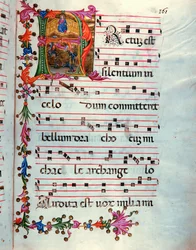 Factuz est
silentium in
celo dum committeret
bellum dra co cuz mi
chae le archange lo
Audita est vox milia mi